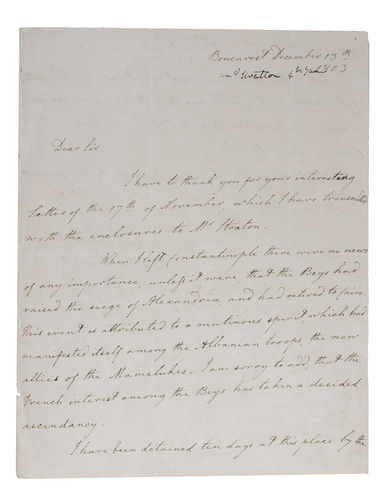 Boucarest December 13th
1803
Dear Sir
I have to thank you for your interesting
Letter of the 17th of November which I have transmitted
with the enclosures to Mr Straton.
When I left Constantinople there were no news
of any importance, unless it were, that the Beys had
raised the siege of Alexandria, and had retired to Cairo.
this event is attributed to a mutinous spirit which had
manifested itself among the Albanian troops, the new
allies of the Mamelukes. I am sorry to add, that the
French interest among the Beys has taken a decided
ascendancy.
I have been detained ten days at this place by the